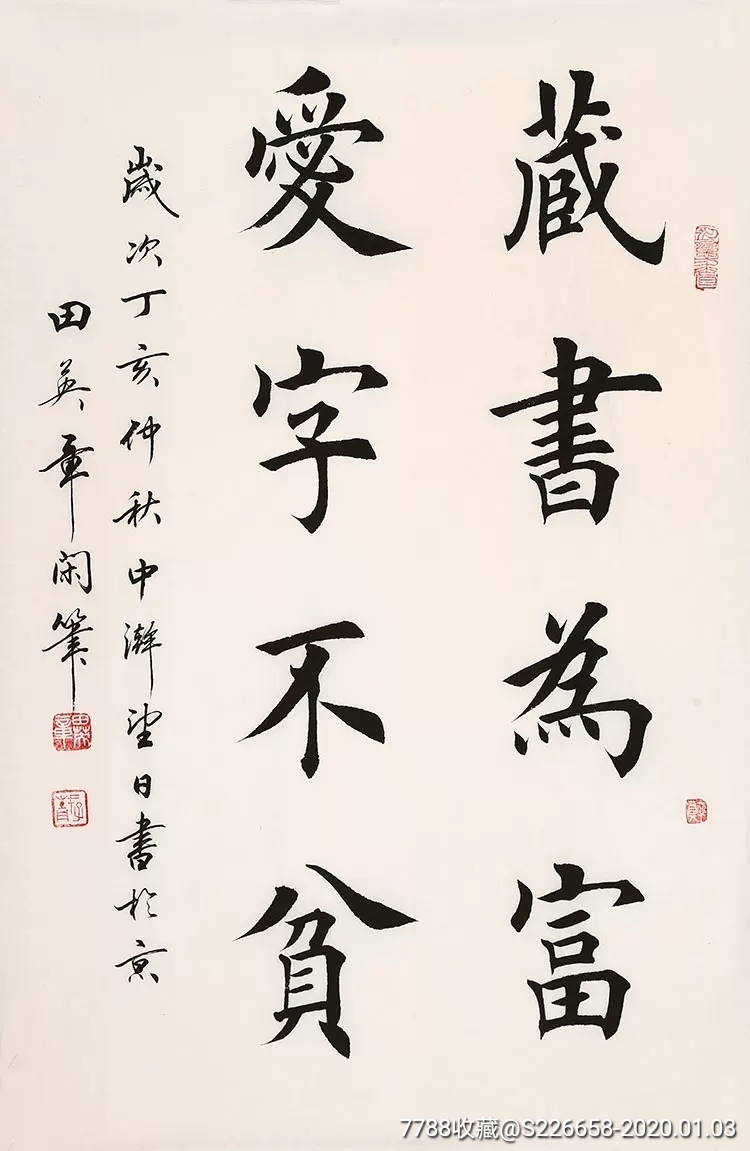 藏書為富
愛字不貧
歲次丁亥仲秋中澣望日書於京
田英章閑筆
田英章
7788收藏@S226658-2020.01.03